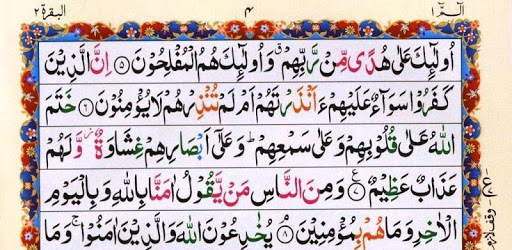 البقرة ٢ ٤ الٓمّٓ ١
اُولٰٓئِكَ عَلٰى هُدًى مِّنْ رَّبِّهِمْ ۗ وَاُولٰٓئِكَ هُمُ الْمُفْلِحُوْنَ ۝٥ اِنَّ الَّذِيْنَ
كَفَرُوْا سَوَآءٌ عَلَيْهِمْ ءَاَنْذَرْتَهُمْ اَمْ لَمْ تُنْذِرْهُمْ لَا يُؤْمِنُوْنَ ۝٦ خَتَمَ
اللّٰهُ عَلٰى قُلُوْبِهِمْ وَعَلٰى سَمْعِهِمْ ؕ وَعَلٰٓى اَبْصَارِهِمْ غِشَاوَةٌ ز وَّلَهُمْ
عَذَابٌ عَظِيْمٌ ۝٧ ع وَمِنَ النَّاسِ مَنْ يَّقُوْلُ اٰمَنَّا بِاللّٰهِ وَبِالْيَوْمِ
الْاٰخِرِ وَمَا هُمْ بِمُؤْمِنِيْنَ ۝٨ يُخٰدِعُوْنَ اللّٰهَ وَالَّذِيْنَ اٰمَنُوْا ۚ وَمَا